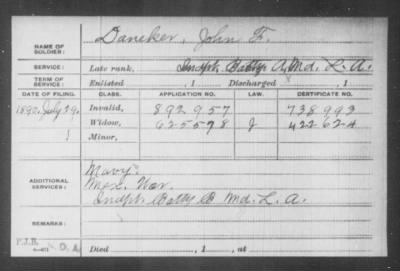 NAME OF SOLDIER: Daneker, John F.
SERVICE: Late rank, Indpt. Batty A, Md. L. A.
TERM OF SERVICE: Enlisted , 1 Discharged , 1
DATE OF FILING. CLASS. APPLICATION NO. LAW. CERTIFICATE NO.
1890, July 29. Invalid, 892 957 738 993
Widow, 625 578 J 422 624
Minor,
ADDITIONAL SERVICES: Navy.
Mex. War.
Indpt. Batty B Md. L. A.
REMARKS:
P.J.R.
Died , 1 , at